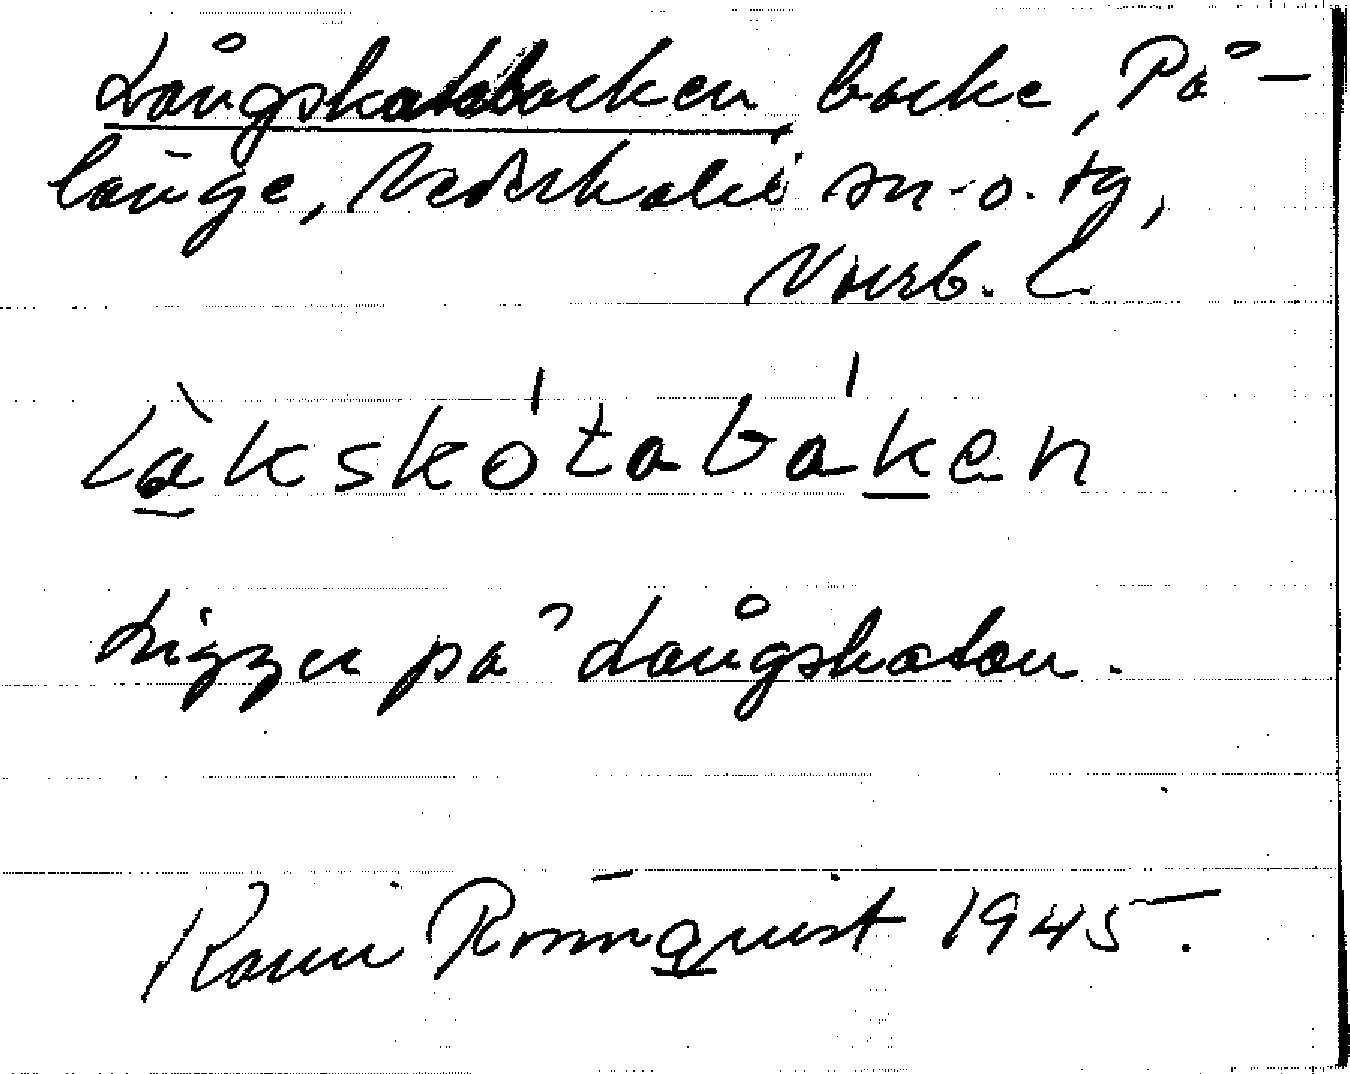 Långskatabacken, backe, På-
länge, Nederkalix sn o. tg,
Norrb. L.
Làkskátabáken
Ligger på Långskatan.
Karin Rönnquist 1945.